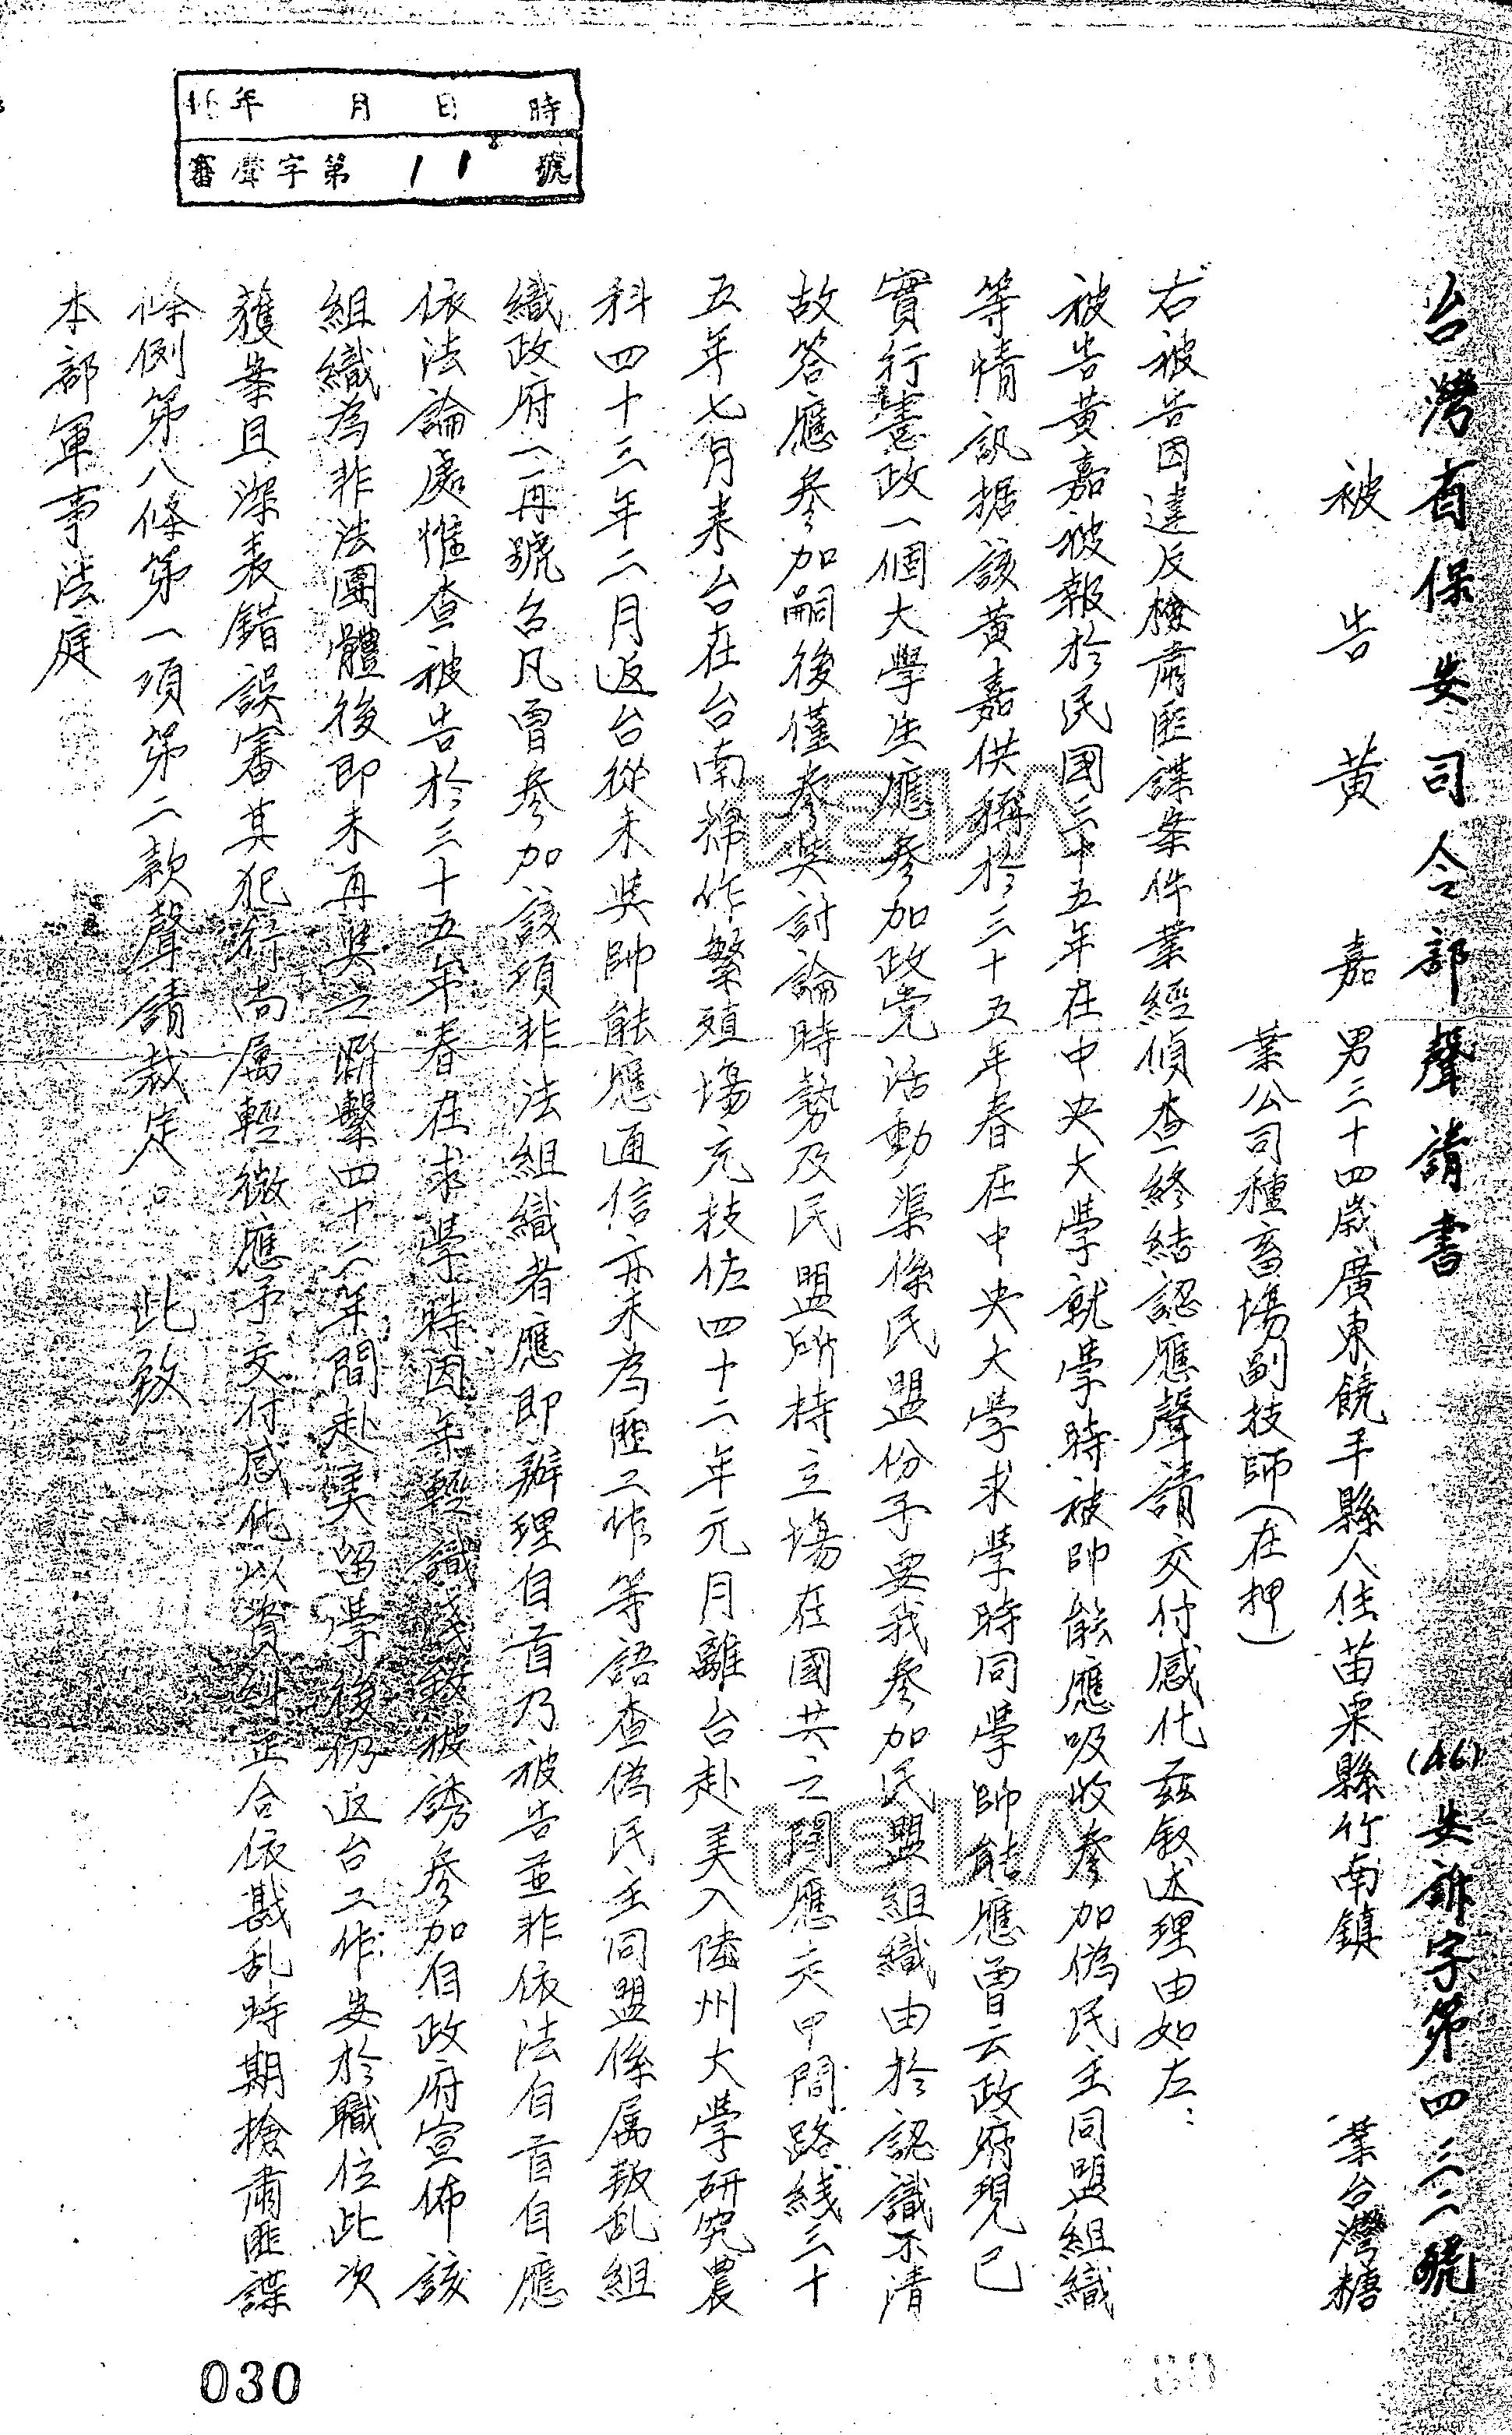 46年 月 日 時
審聲字第 118 號
台灣省保安司令部聲請書 (46)安訴字第四三二號
被告 黃嘉 男三十四歲廣東饒平縣人住苗栗縣竹南鎮 業台灣糖
業公司種畜場副技師(在押)
右被告因違反檢肅匪諜案件業經偵查終結認應聲請交付感化茲叙述理由如左:
被告黃嘉被報於民國三十五年在中央大學就學時被帥能應吸收參加偽民主同盟組織
等情訊据該黃嘉供稱於三十五年春在中央大學求學時同學帥能應曾云政府現已
實行憲政一個大學生應參加政党活動渠係民盟份子要我參加民盟組織由於認識不清
故答應參加嗣後僅參與討論時勢及民盟所持立場在國共之間應走中間路綫三十
五年七月來台在台南棉作繁殖場充技佐四十二年元月離台赴美入陸州大學研究農
科四十三年二月返台從未與帥能應通信亦未為匪工作等語查偽民主同盟係属叛乱組
織政府一再號召凡曾參加該項非法組織者應即辦理自首乃被告並非依法自首自應
依法論處惟查被告於三十五年春在求學時因年輕識淺致被誘參加自政府宣佈該
組織為非法團體後即未再與之聯繫四十二年間赴美留學後仍返台工作安於職位此次
獲案且深表錯誤審其犯行尚属輕微應予交付感化以資糾正合依戡乱時期檢肅匪諜
條例第八條第一項第二款聲請裁定。 此致
本部軍事法庭
030